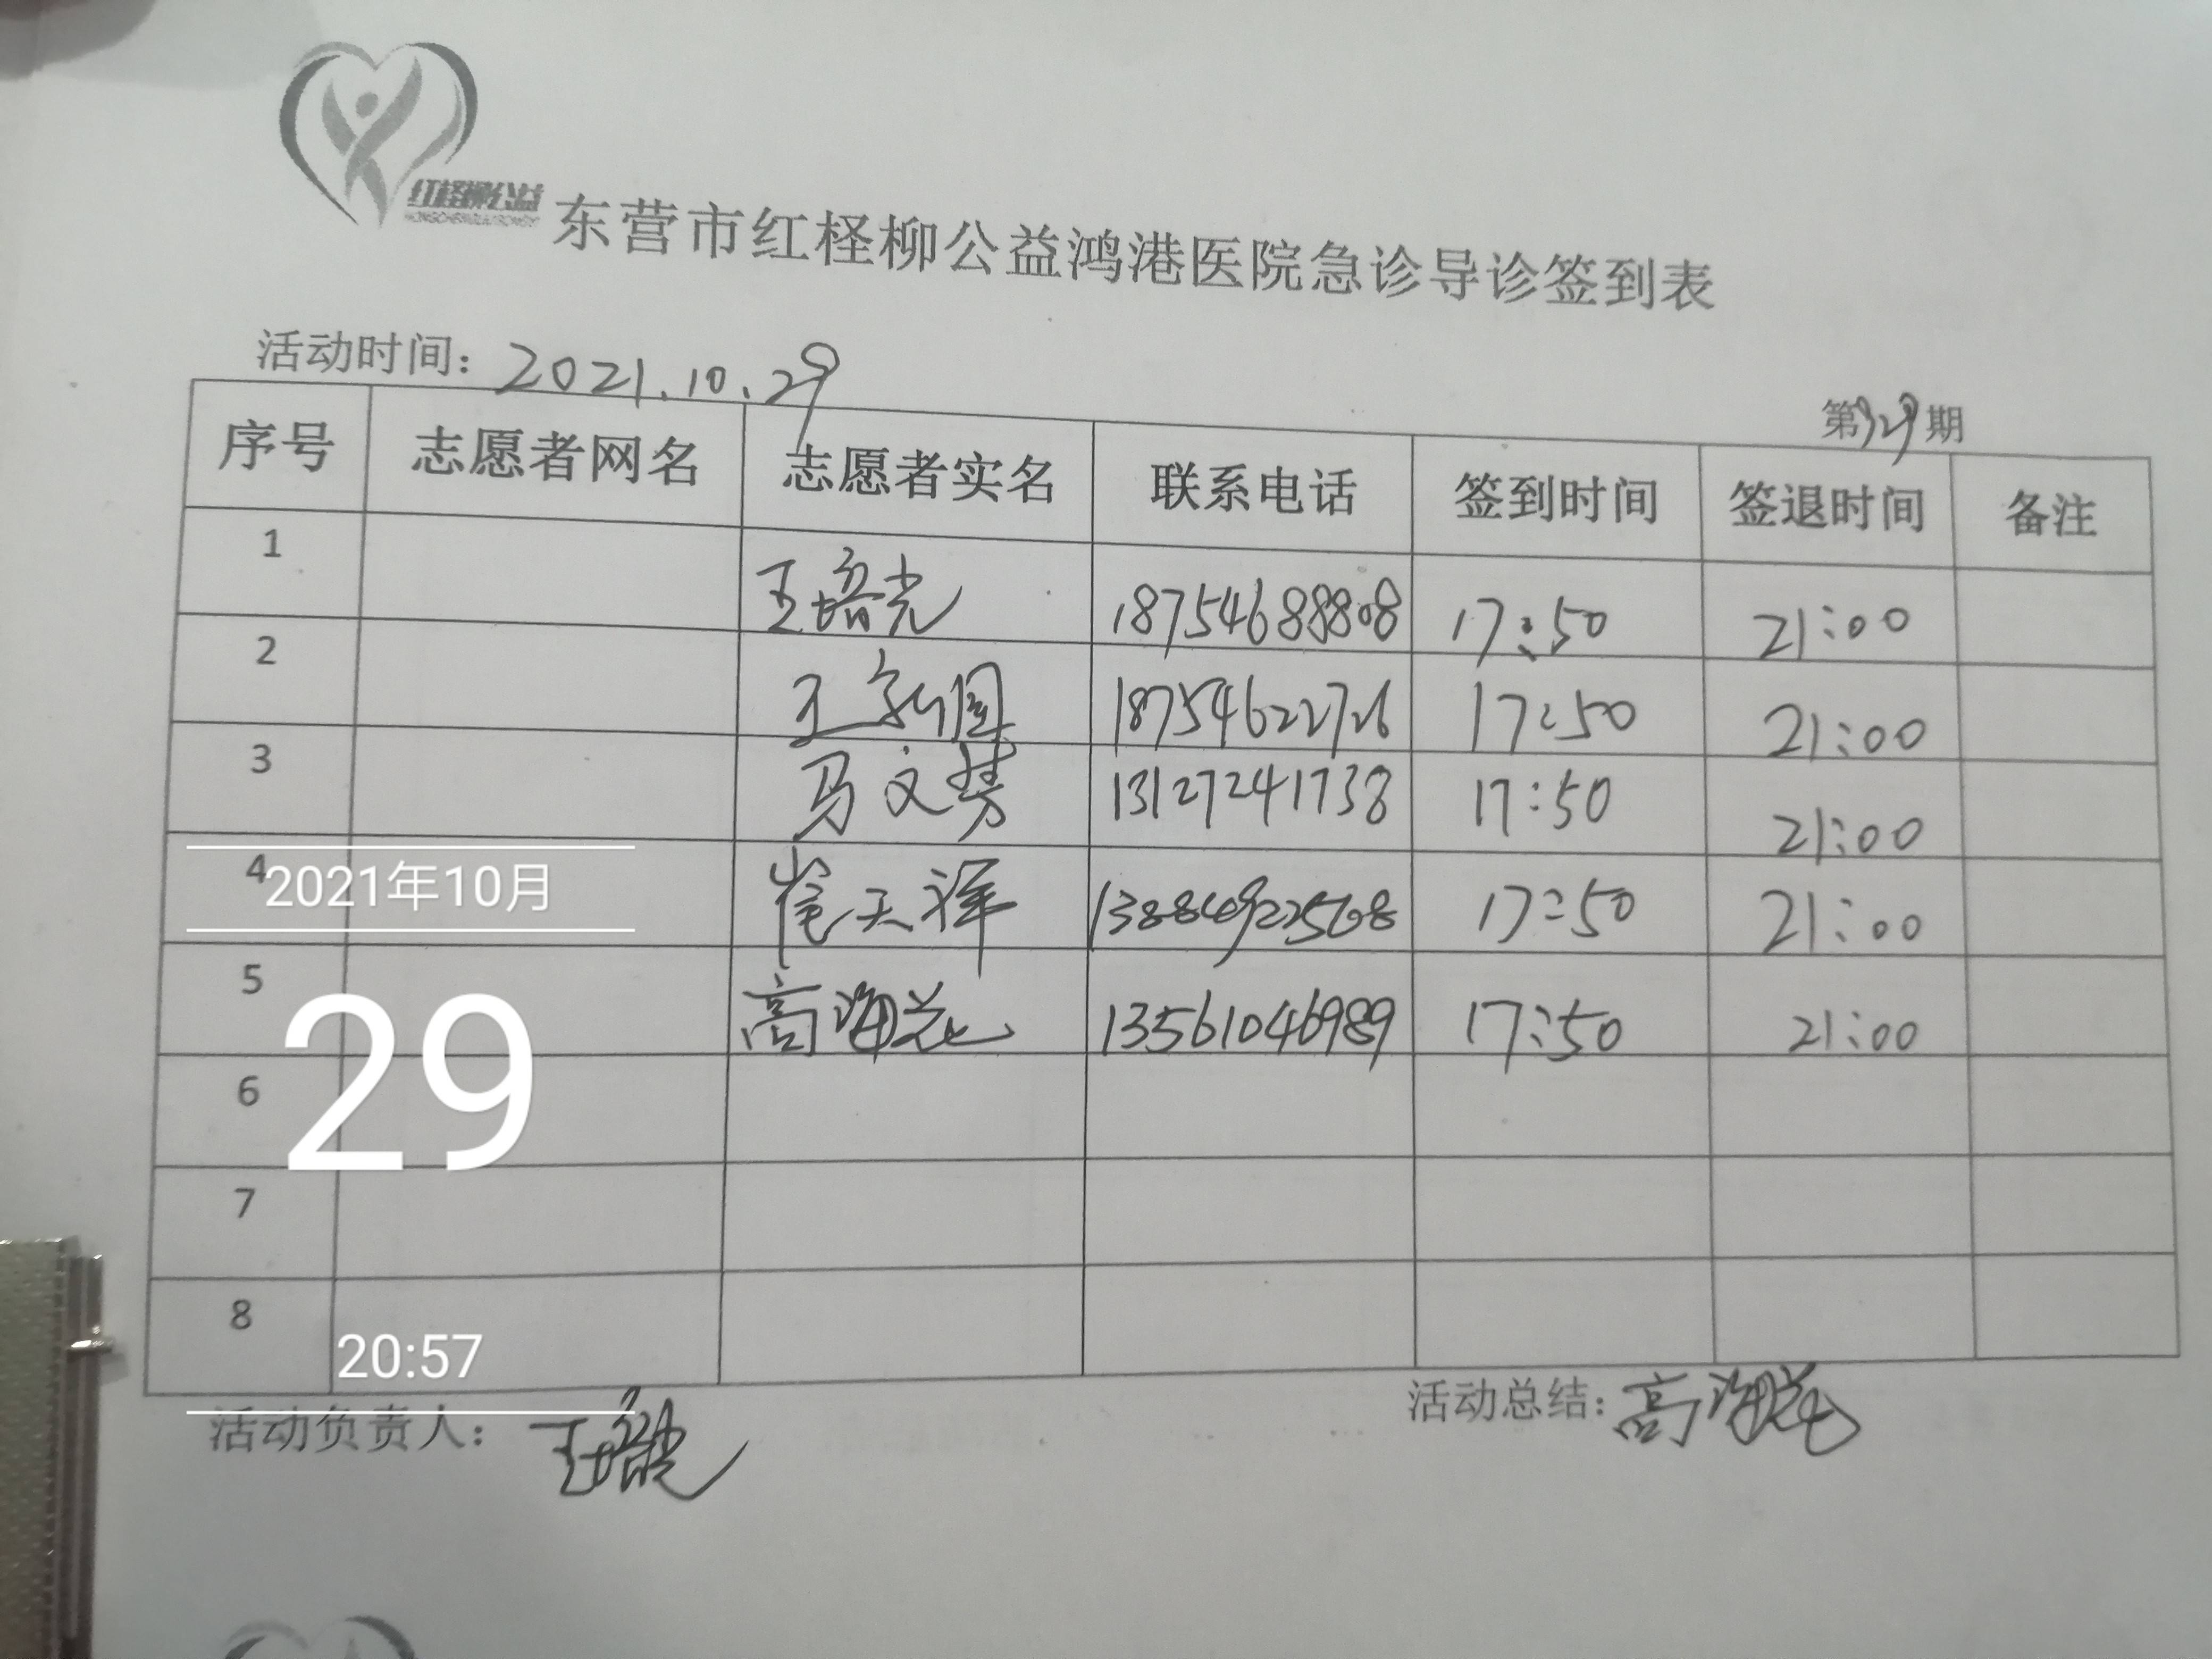 红柽柳公益
东营市红柽柳公益鸿港医院急诊导诊签到表
活动时间：2021.10.29
第329期
序号 志愿者网名 志愿者实名 联系电话 签到时间 签退时间 备注
1 王培光 18754688808 17:50 21:00
2 王 18754622726 17:50 21:00
3 马文慧 13127241738 17:50 21:00
4 崔天祥 13884922568 17:50 21:00
5 高海花 13561046989 17:50 21:00
6
7
8
2021年10月
29
20:57
活动负责人：王培光
活动总结：高海花